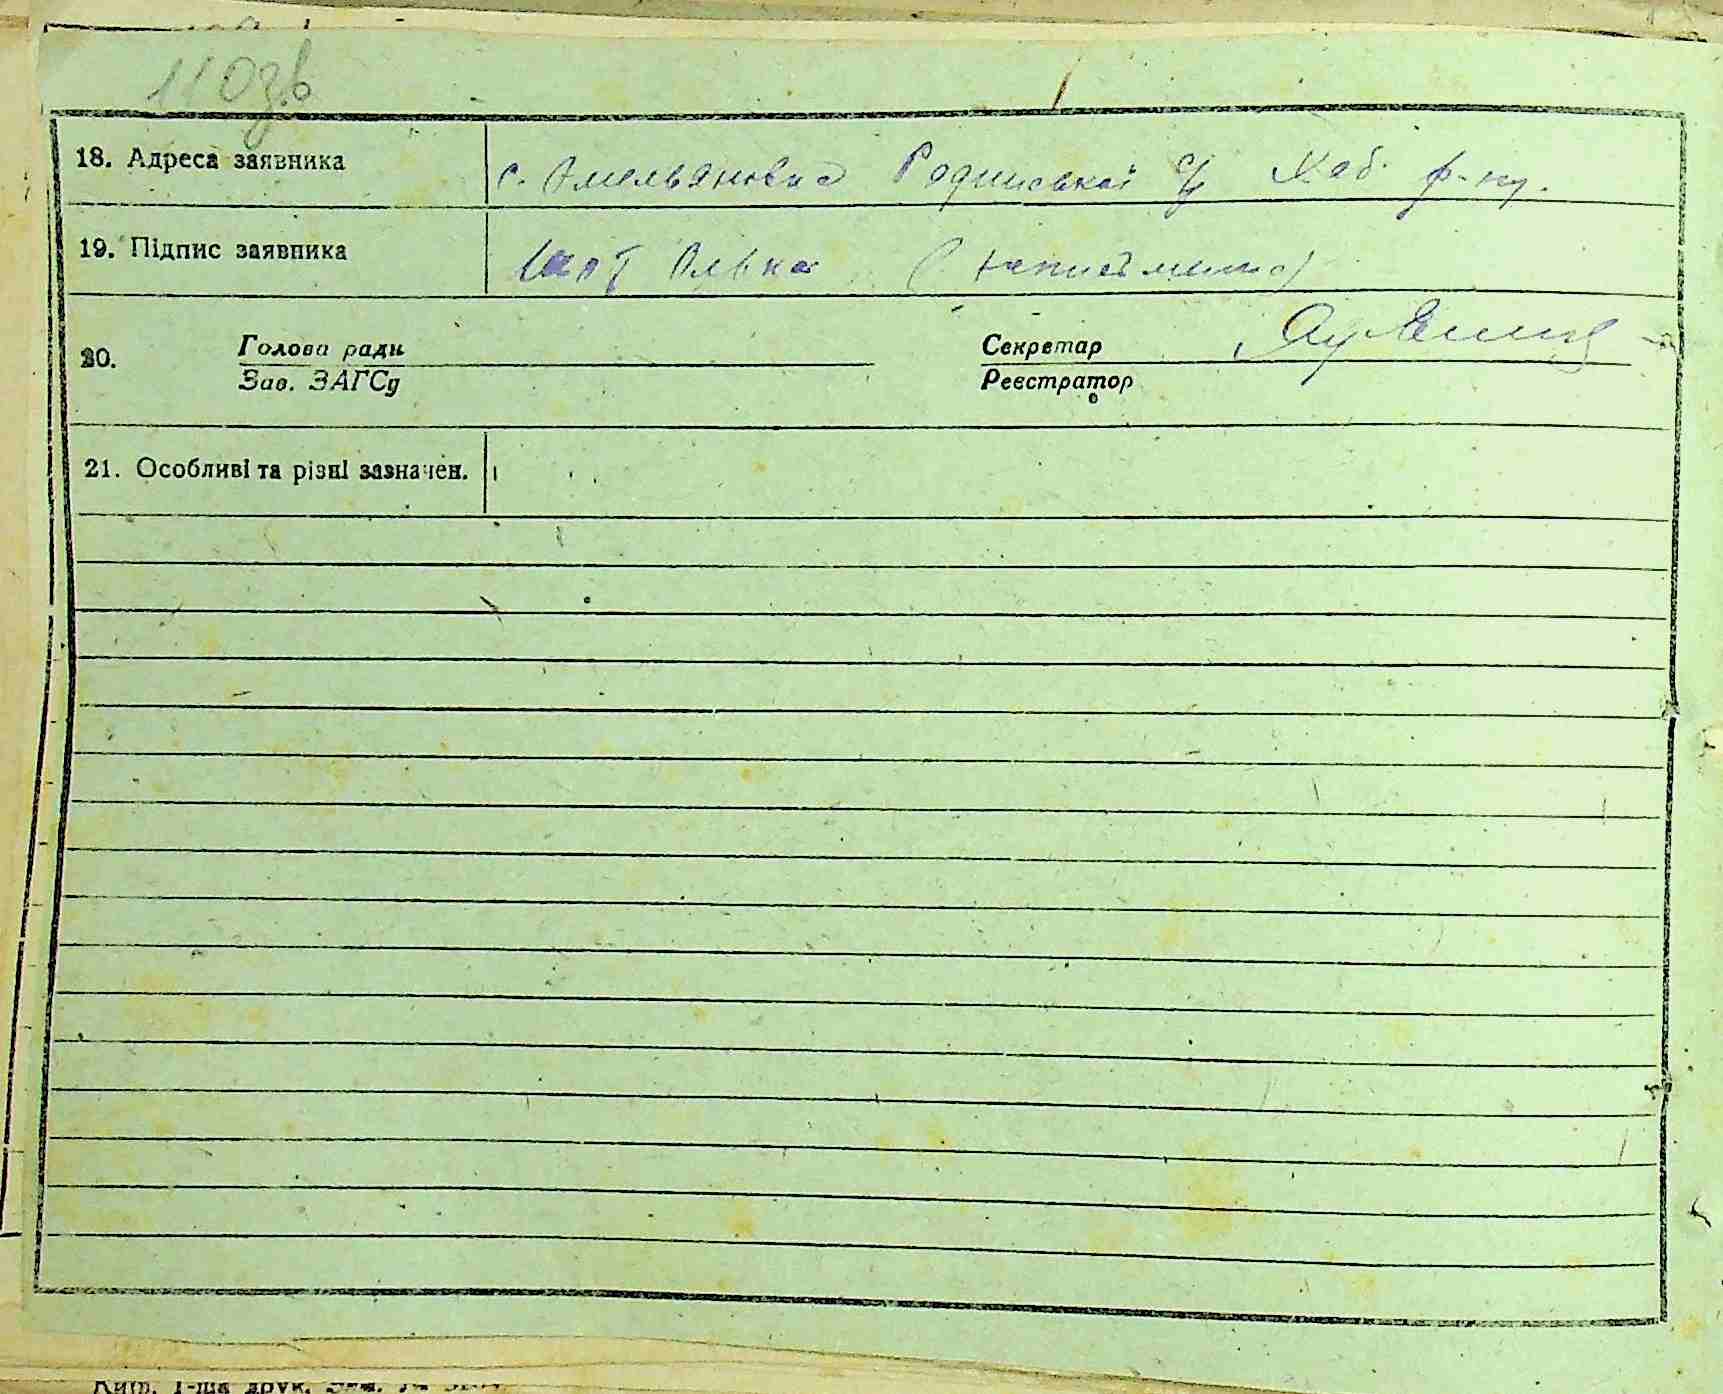 110зв
18. Адреса заявника с. Омельяновка Родинської с/р Хаб. р-ну.
19. Підпис заявника Шот Олька (неписьменна)
20. Голова ради Секретар
Зав. ЗАГСу Реєстратор
21. Особливі та різні зазначен.